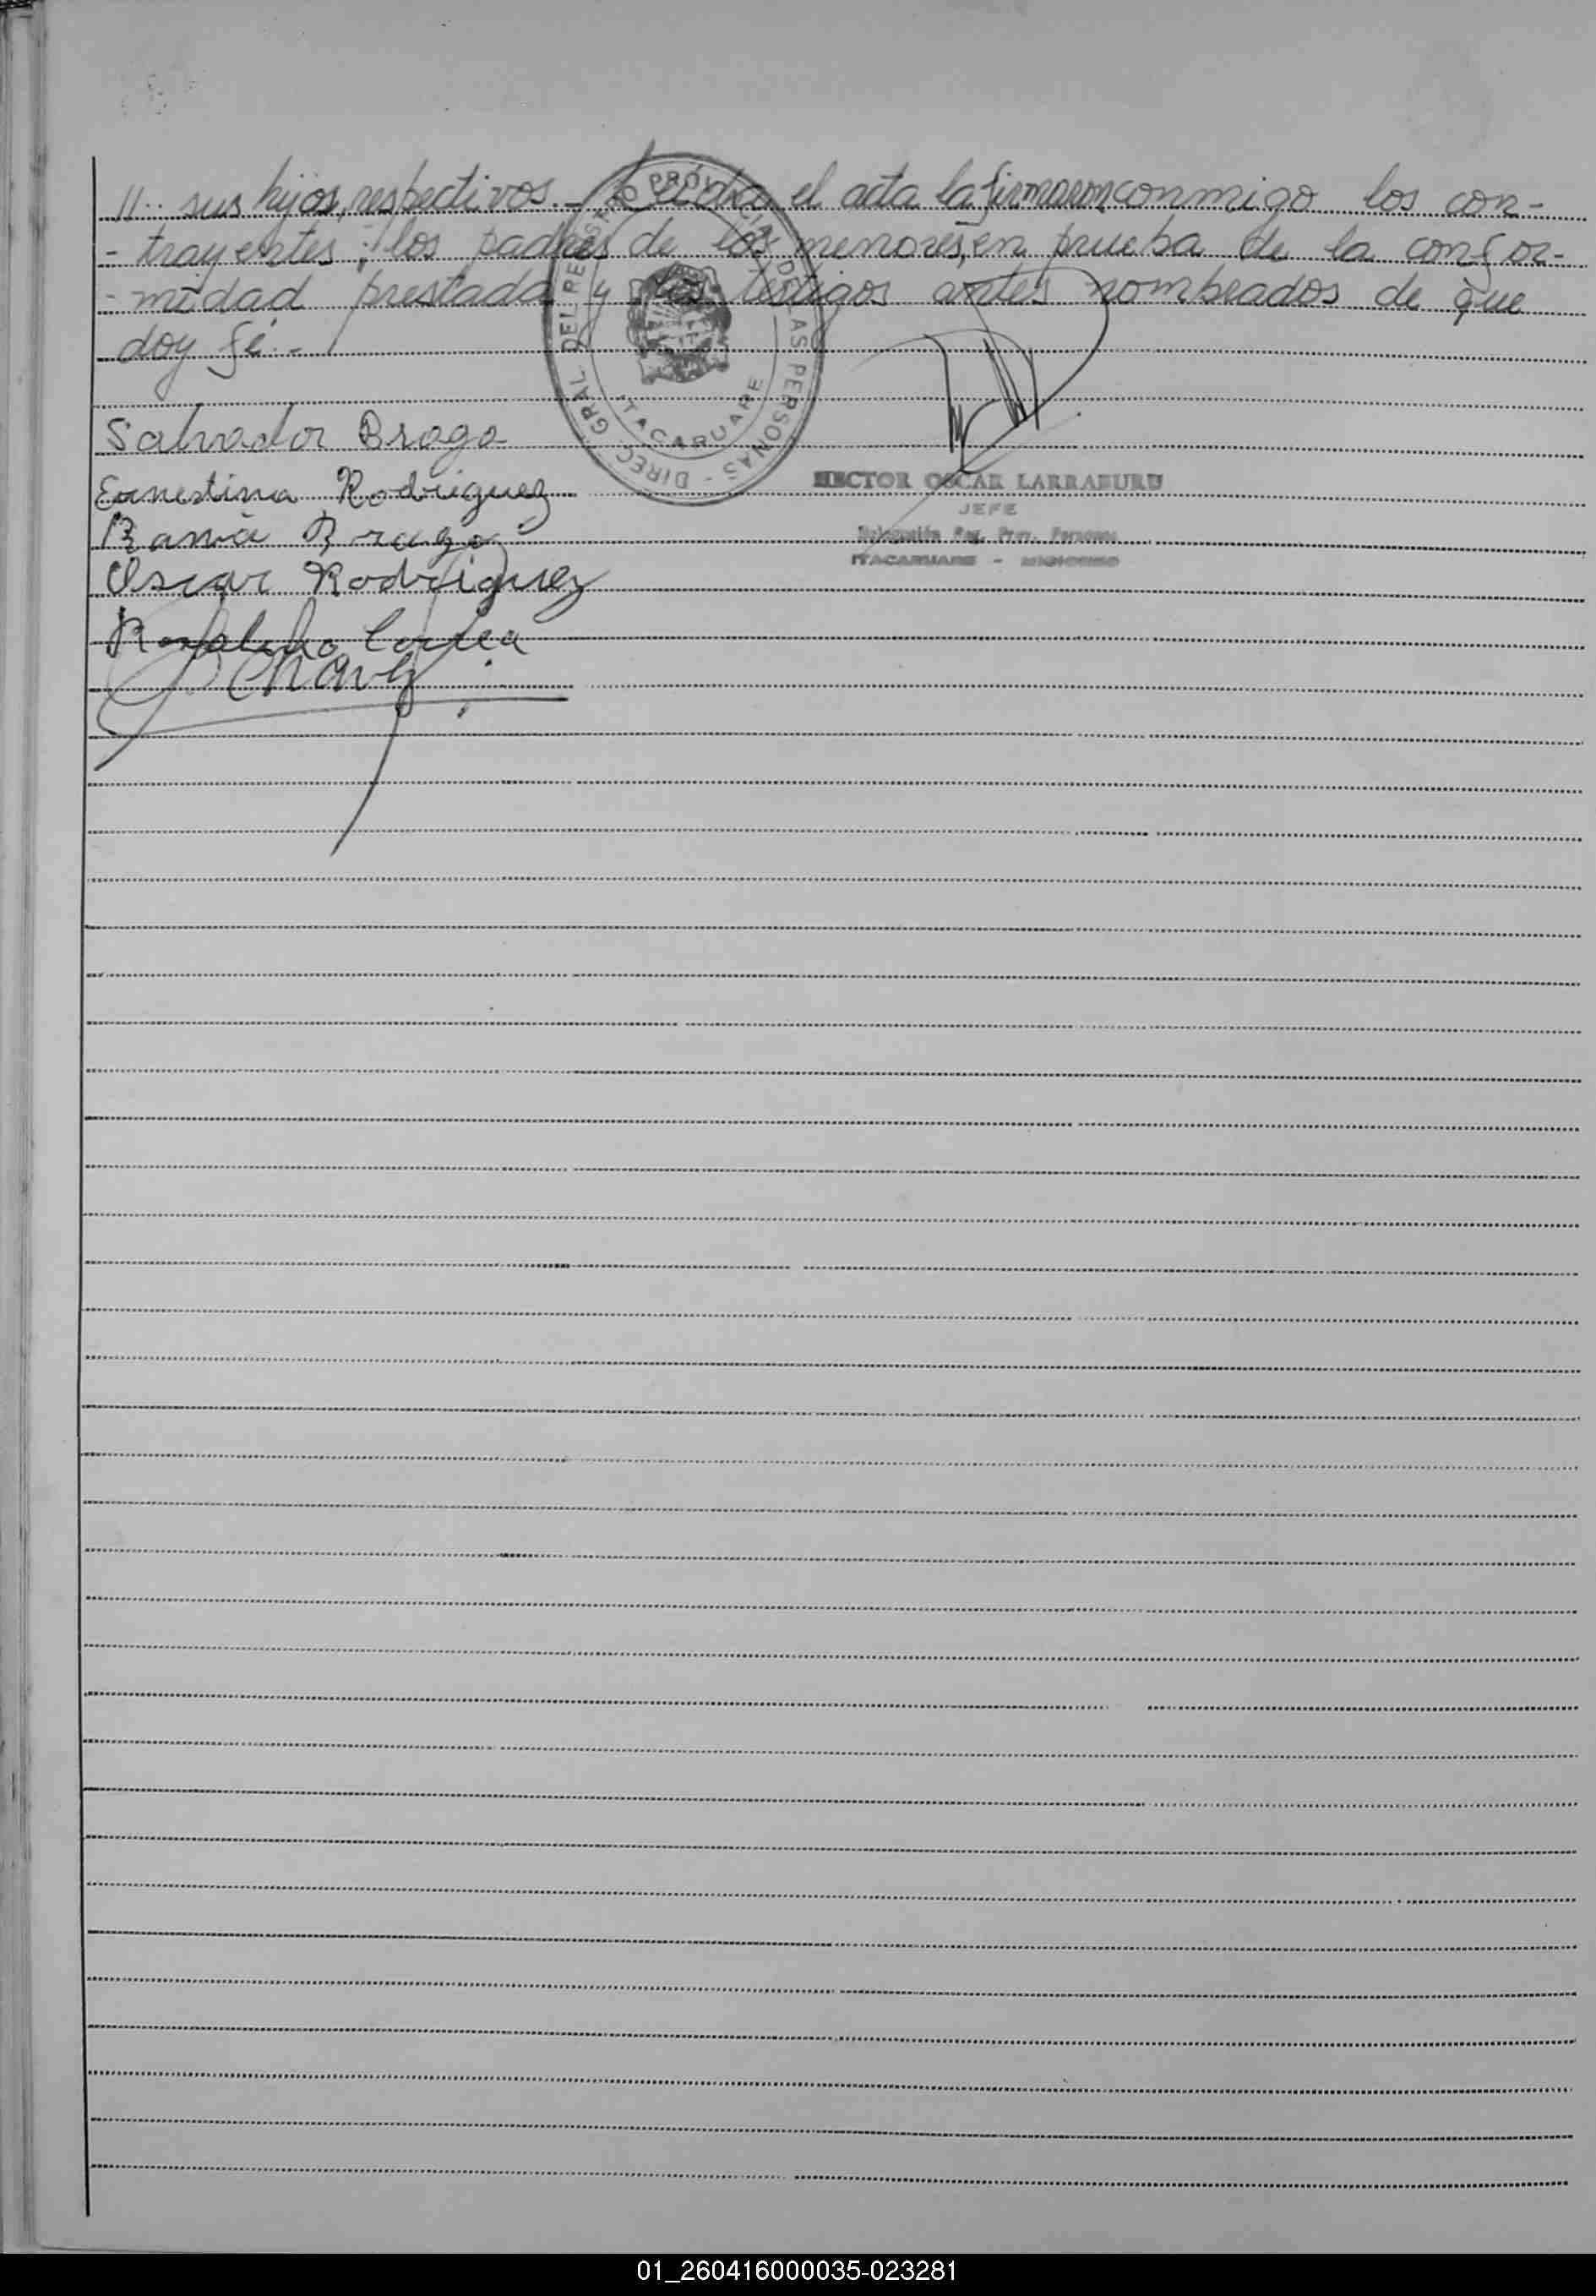 11.. sus hijos, respectivos.- Leída el acta la firmaron conmigo los con-
- trayentes; los padres de los menores, en prueba de la confor-
- midad prestada y los testigos antes nombrados de que
doy fé.-
DIREC. GRAL. DEL REGISTRO PROVINCIAL DE LAS PERSONAS -
ITACARUARE
Salvador Braga
Ernestina Rodriguez
HECTOR OSCAR LARRABURU
JEFE
Ramã Braga
Delegación Reg. Prov. Personas
ITACARUARE - MISIONES
Oscar Rodriguez
Correa
Chavez
01_260416000035-023281